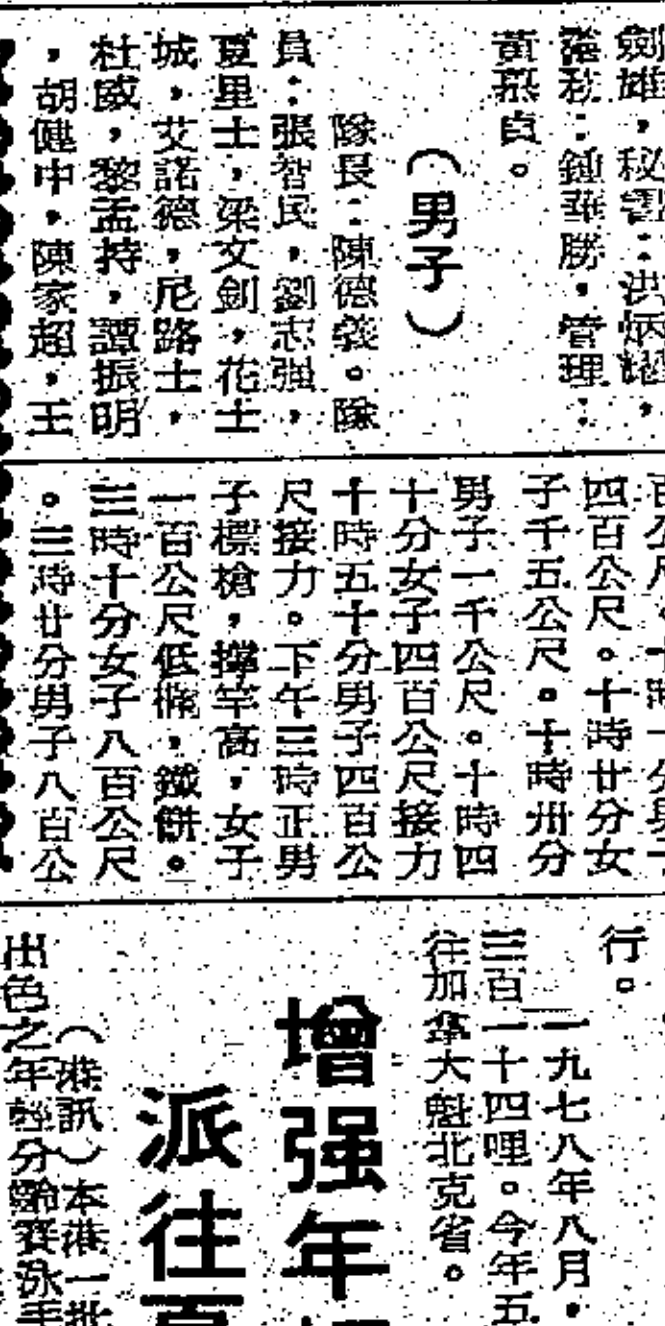 劍雄，秘書：洪炳耀，
：鍾華勝，管理：
黃燕貞。
（男子）
隊長：陳德義。隊
員：張智民，劉志强，
夏里士，梁文釗，花士
城，艾諾德，尼路士，
杜威，黎孟持，譚振明
，胡健中，陳家超，王
百公尺。十時一分男子
四百公尺。十時廿分女
子千五公尺。十時卅分
男子一千公尺。十時四
十分女子四百公尺接力
十時五十分男子四百公
尺接力。下午三時正男
子標槍，撑竿高，女子
一百公尺低欄，鐵餅。
三時十分女子八百公尺
。三時廿分男子八百公
行。
一九七八年八月，
三百一十四哩。今年五
往加拿大魁北克省。
增强年
派往
（港訊）本港一批
出色之年輕分齡賽泳手